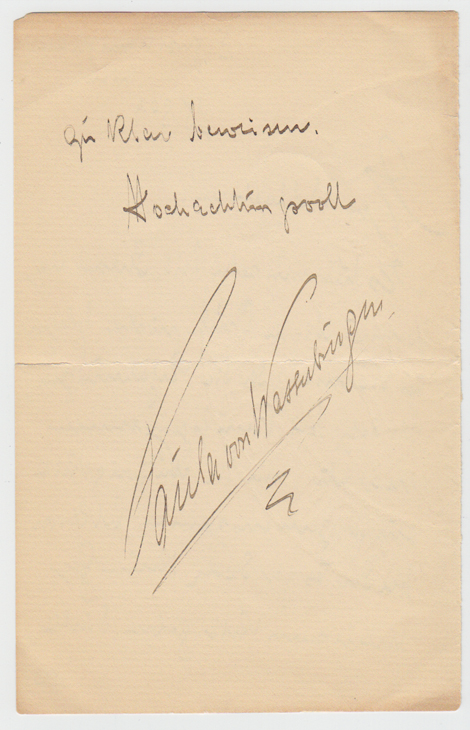 zu klar beweisen.
Hochachtungsvoll
Paula von